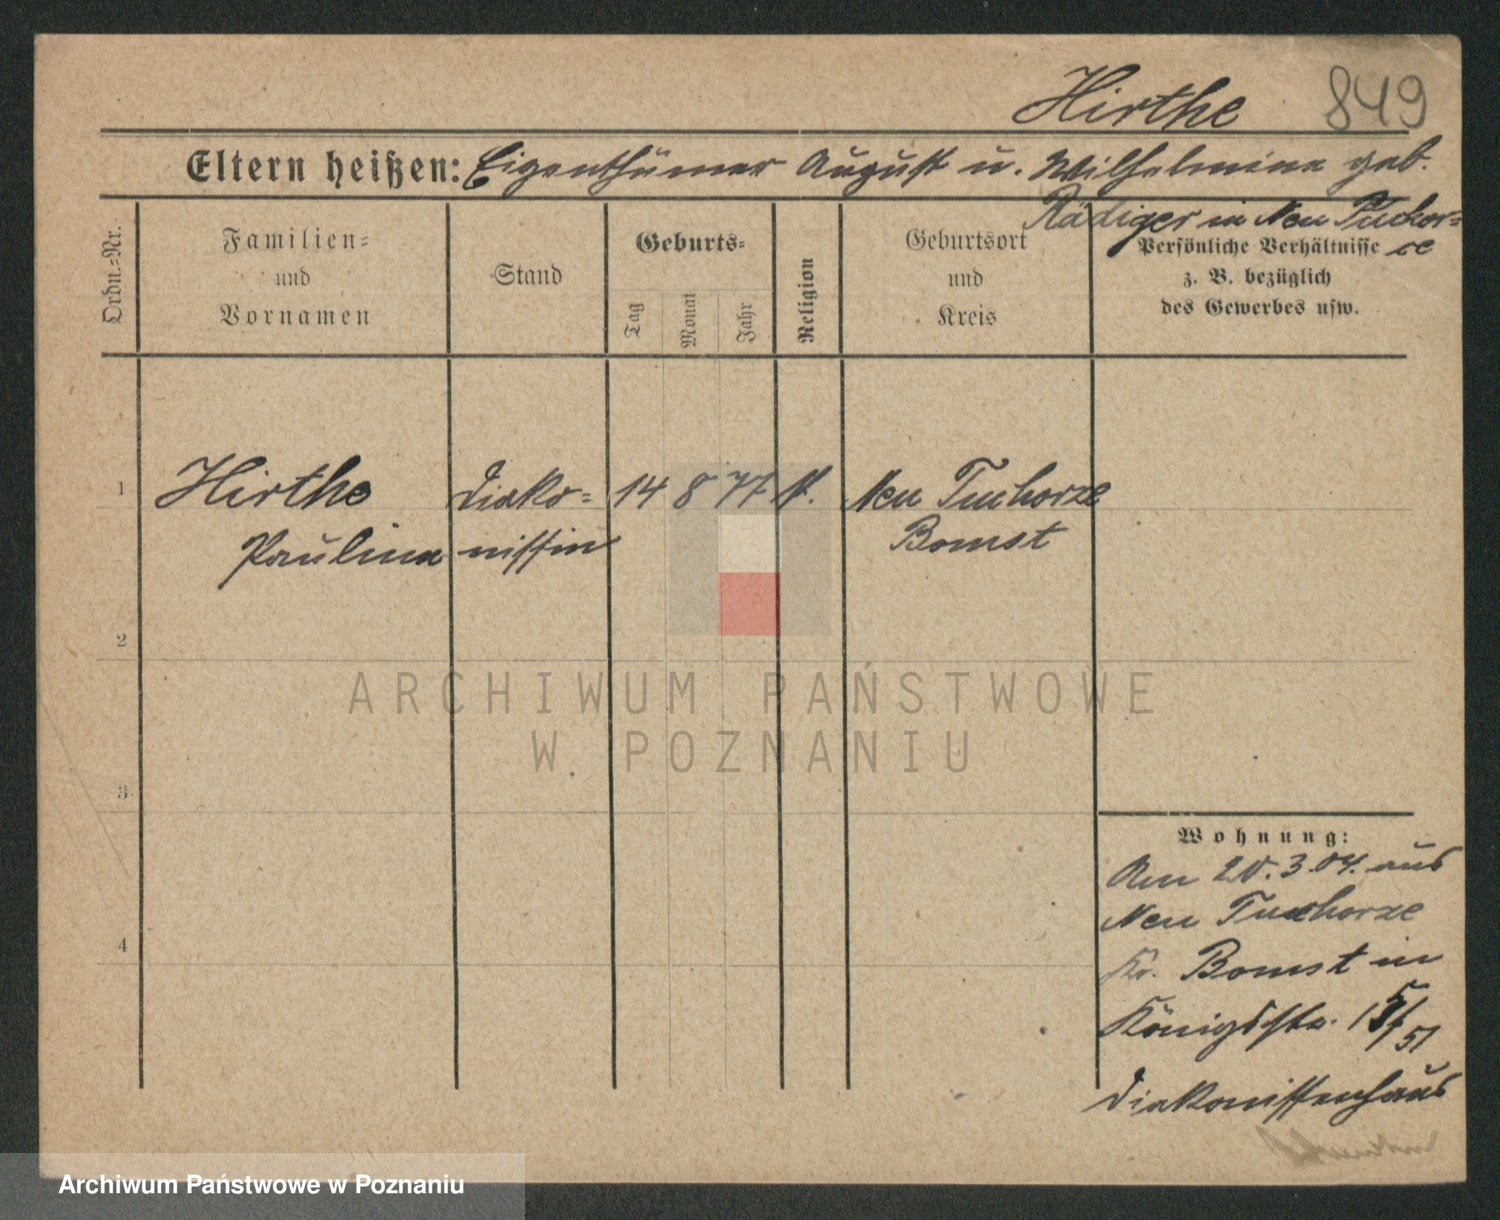 Hirthe 849
Eltern heißen: Eigenthümer August u. Wilhelmine geb.
Rädiger in Neu Tuchor=
ze
Ordn.=Nr.
Familien=
und
Vornamen
Stand
Geburts=
Tag
Monat
Jahr
Religion
Geburtsort
und
Kreis
Persönliche Verhältnisse
z. B. bezüglich
des Gewerbes usw.
1 Hirthe Diako= 14 8 77 Neu Tuchorze
Pauline nissin Bomst
2
3
4
Wohnung:
Am 3.04. aus
Neu Tuchorze
Kr. Bomst in
Königsstr.
Diakonissenhaus
ARCHIWUM PAŃSTWOWE
W POZNANIU
Archiwum Państwowe w Poznaniu